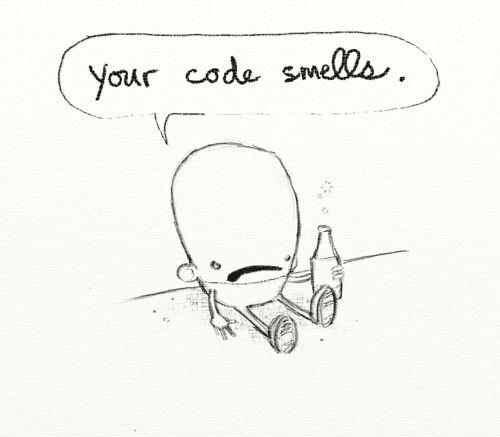 Your code smells.